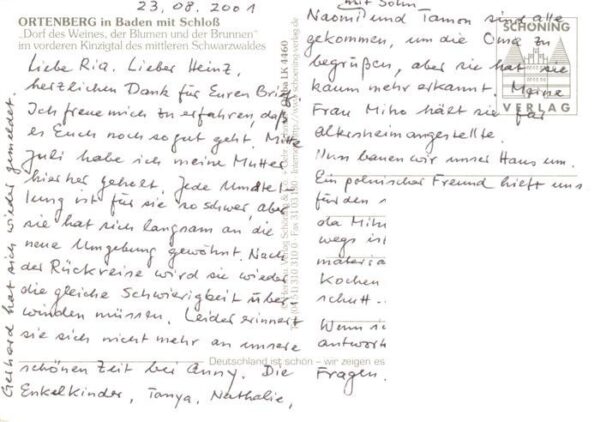 23.08.2001
ORTENBERG in Baden mit Schloß
„Dorf des Weines, der Blumen und der Brunnen"
im vorderen Kinzigtal des mittleren Schwarzwaldes
Liebe Ria. Lieber Heinz,
herzlichen Dank für Euren Brief.
Ich freue mich zu erfahren, daß
es Euch noch so gut geht. Mitte
Juli habe ich meine Mutter
hierher geholt. Jede Umstel
lung ist für sie so schwer, aber
sie hat sich langsam an die
neue Umgebung gewöhnt. Nach
der Rückreise wird sie wieder
die gleiche Schwierigkeit über
winden müssen. Leider erinnert
sie sich nicht mehr an unsere
schönen Zeit bei Anny. Die
Enkelkinder, Tanya, Nathalie,
Gerhard hat sich wieder gemeldet.
Deutschland ist schön – wir zeigen es
LK 4460
mit Sohn
Naomi und Tamon sind alle
gekommen, um die Oma zu
begrüßen, aber sie hat sie
kaum mehr erkannt. Meine
Frau Miho hält sie für
altersheimangestellte.
Nun bauen wir unser Haus um.
Ein polnischer Freund hieft uns
für den
da Miho
wegs ist
materia
Kochen
schutt
Wenn si
antwort
Fragen.
SCHÖNING
VERLAG